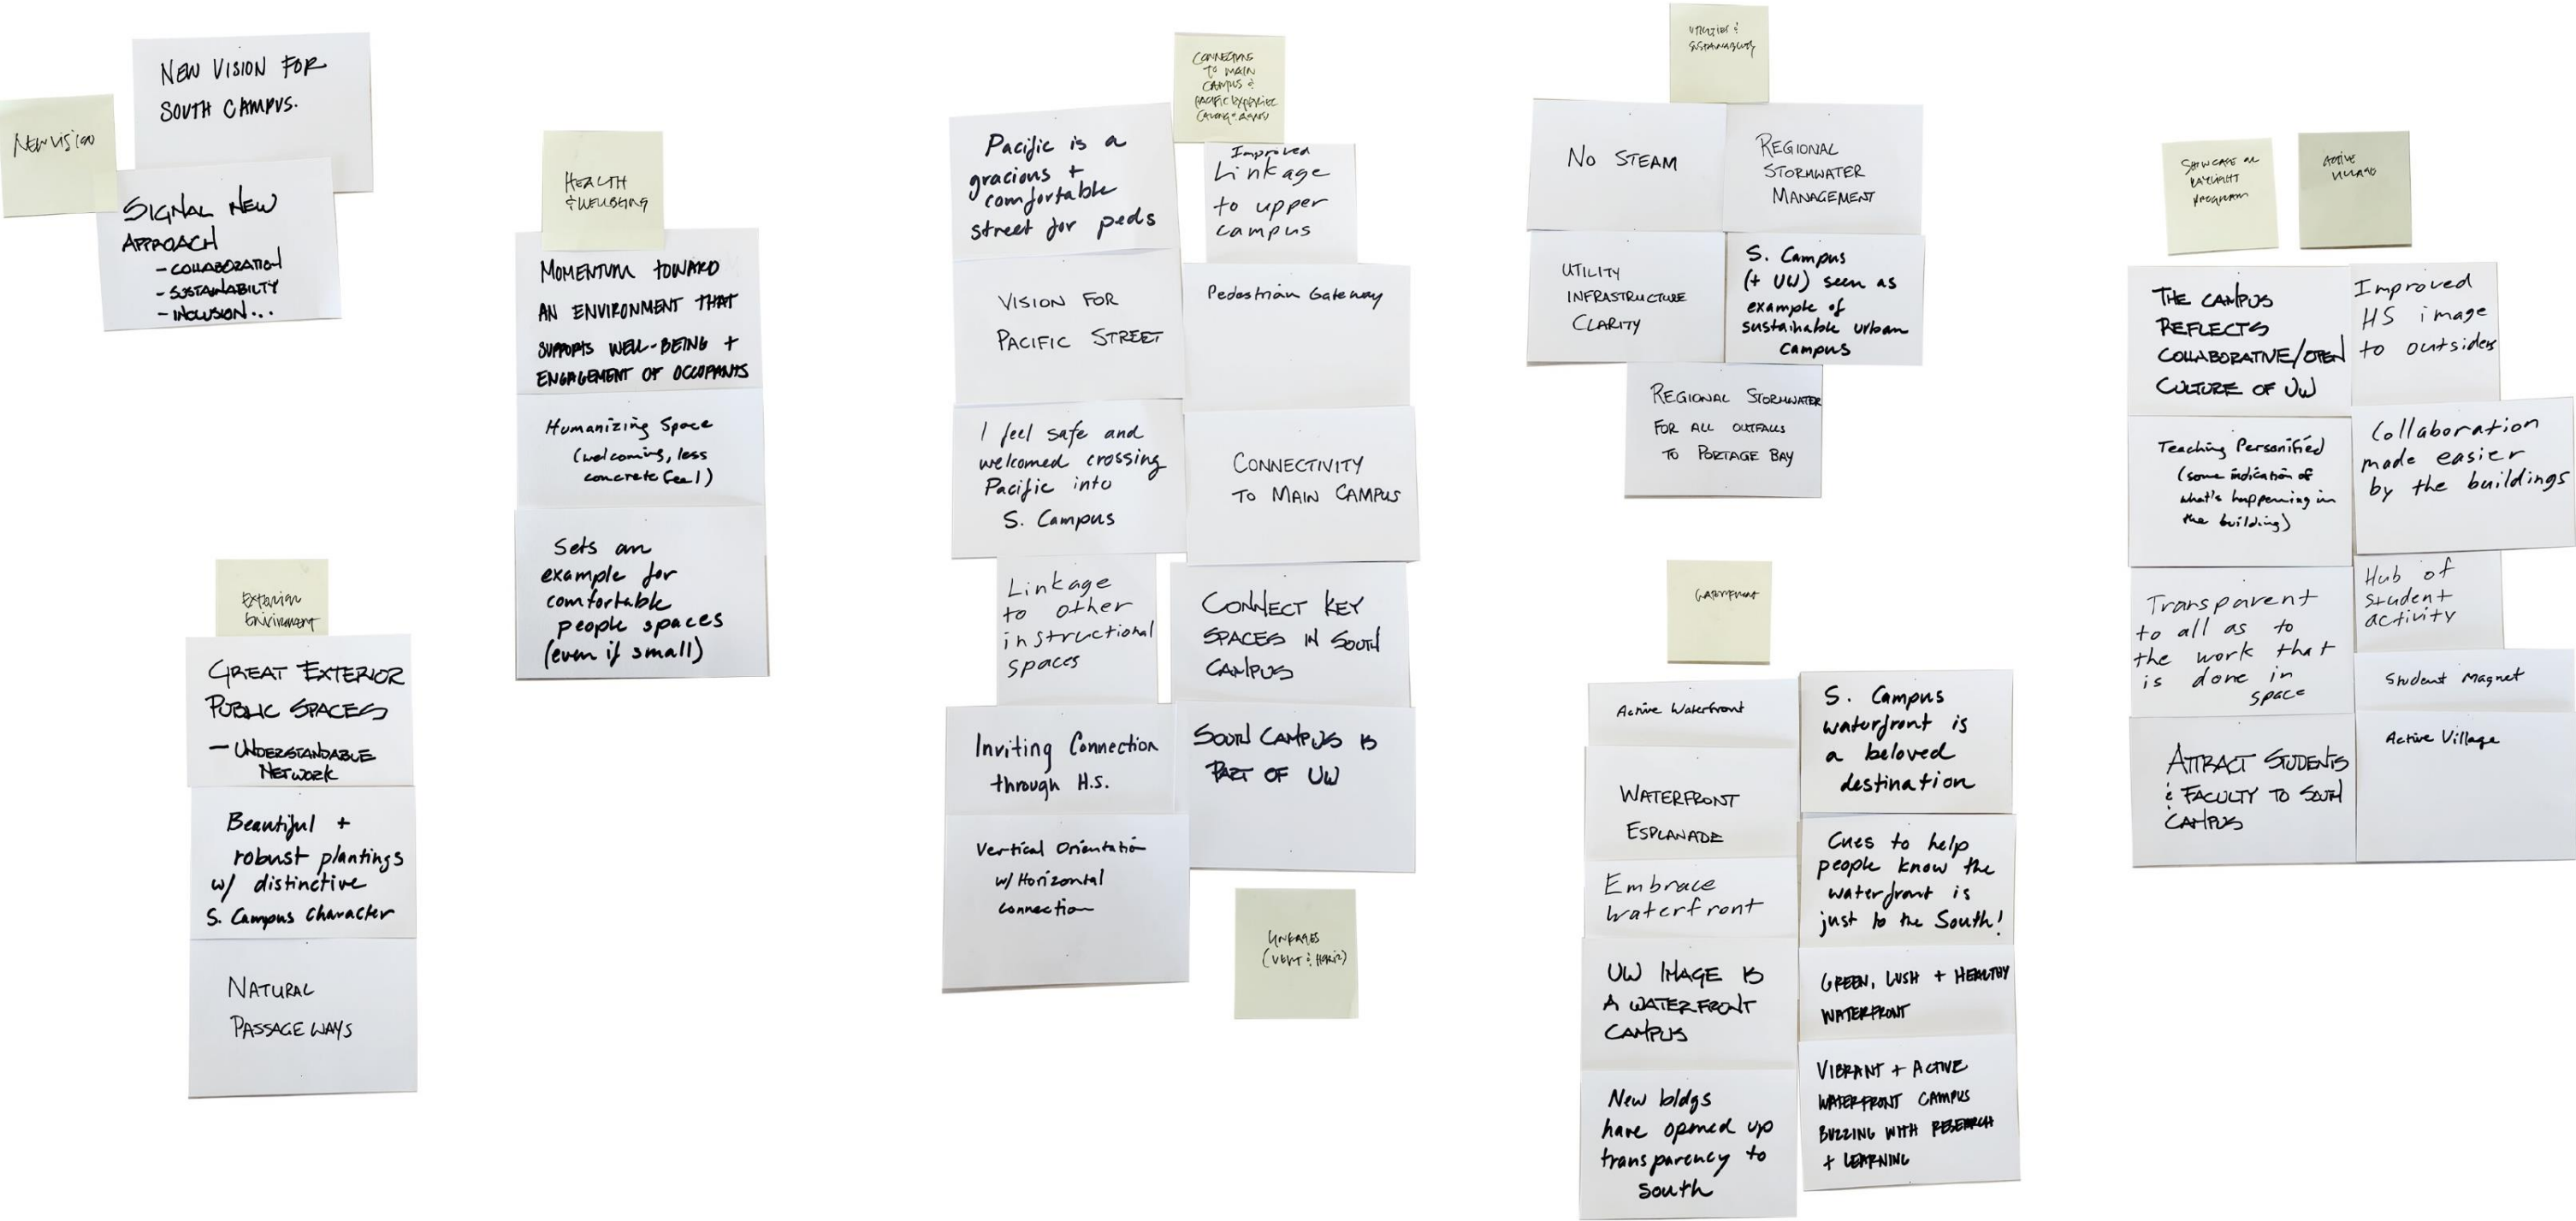 NEW VISION
NEW VISION FOR
SOUTH CAMPUS.
SIGNAL NEW
APPROACH
- COLLABORATION
- SUSTAINABILTY
- INCLUSION...
EXTERIOR
ENVIRONMENT
GREAT EXTERIOR
PUBLIC SPACES
- UNDERSTANDABLE
NETWORK
Beautiful +
robust plantings
w/ distinctive
S. Campus Character
NATURAL
PASSAGE WAYS
HEALTH
& WELLBEING
MOMENTUM TOWARD
AN ENVIRONMENT THAT
SUPPORTS WELL-BEING +
ENGAGEMENT OF OCCUPANTS
Humanizing Space
(welcoming, less
concrete feel)
Sets an
example for
comfortable
people spaces
(even if small)
CONNECTIONS
TO MAIN
CAMPUS &
PACIFIC EXPERIENCE
Pacific is a
gracious +
comfortable
street for peds
VISION FOR
PACIFIC STREET
I feel safe and
welcomed crossing
Pacific into
S. Campus
Linkage
to other
instructional
spaces
Inviting Connection
through H.S.
Vertical Orientation
w/ Horizontal
connection
Improved
Linkage
to upper
campus
Pedestrian Gateway
CONNECTIVITY
TO MAIN CAMPUS
CONNECT KEY
SPACES IN SOUTH
CAMPUS
SOUTH CAMPUS IS
PART OF UW
LINKAGES
(VERT & HORIZ)
UTILITIES &
SUSTAINABILITY
NO STEAM
REGIONAL
STORMWATER
MANAGEMENT
UTILITY
INFRASTRUCTURE
CLARITY
S. Campus
(+ UW) seen as
example of
sustainable urban
campus
REGIONAL STORMWATER
FOR ALL OUTFALLS
TO PORTAGE BAY
WATERFRONT
Active Waterfront
WATERFRONT
ESPLANADE
Embrace
Waterfront
UW IMAGE IS
A WATERFRONT
CAMPUS
New bldgs
have opened up
transparency to
South
S. Campus
waterfront is
a beloved
destination
Cues to help
people know the
waterfront is
just to the South!
GREEN, LUSH + HEALTHY
WATERFRONT
VIBRANT + ACTIVE
WATERFRONT CAMPUS
BUZZING WITH RESEARCH
+ LEARNING
SHOWCASE OR
DAYLIGHT
PROGRAM
ACTIVE
VILLAGE
THE CAMPUS
REFLECTS
COLLABORATIVE/OPEN
CULTURE OF UW
Teaching Personified
(some indication of
what's happening in
the building)
Transparent
to all as to
the work that
is done in
space
ATTRACT STUDENTS
& FACULTY TO SOUTH
CAMPUS
Improved
HS image
to outsiders
Collaboration
made easier
by the buildings
Hub of
Student
activity
Student Magnet
Active Village